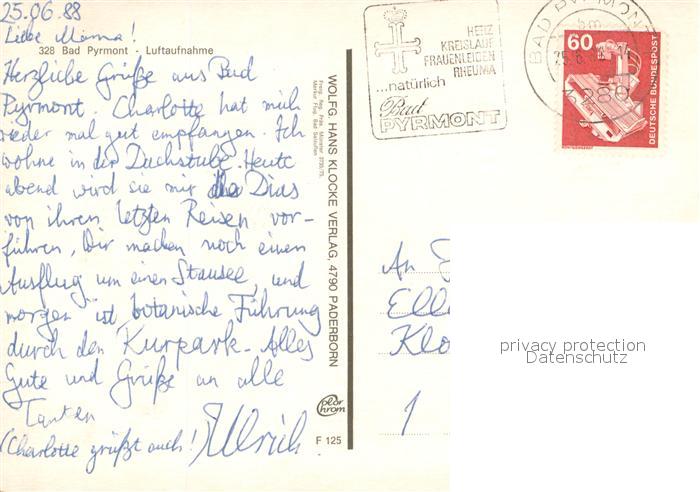 25.06.88
Liebe Mama!
328 Bad Pyrmont - Luftaufnahme
Herzliche Grüße aus Bad
Pyrmont. Charlotte hat mich
wieder mal gut empfangen. Ich
wohne in der Dachstube. Heute
abend wird sie mir Dias
von ihren letzten Reisen vor-
führen, Wir machen noch einen
Ausflug um einen Stausee, und
morgen ist botanische Führung
durch den Kurpark. Alles
Gute und Grüße an alle
Tanten
Ulrich
(Charlotte grüßt auch!)
WOLFG. HANS KLOCKE VERLAG, 4790 PADERBORN
F 125
HERZ
KREISLAUF
FRAUENLEIDEN
RHEUMA
...natürlich
Bad
PYRMONT
BAD PYRMONT
3280
60
DEUTSCHE BUNDESPOST
An
Ell
Klo
1
privacy protection
Datenschutz